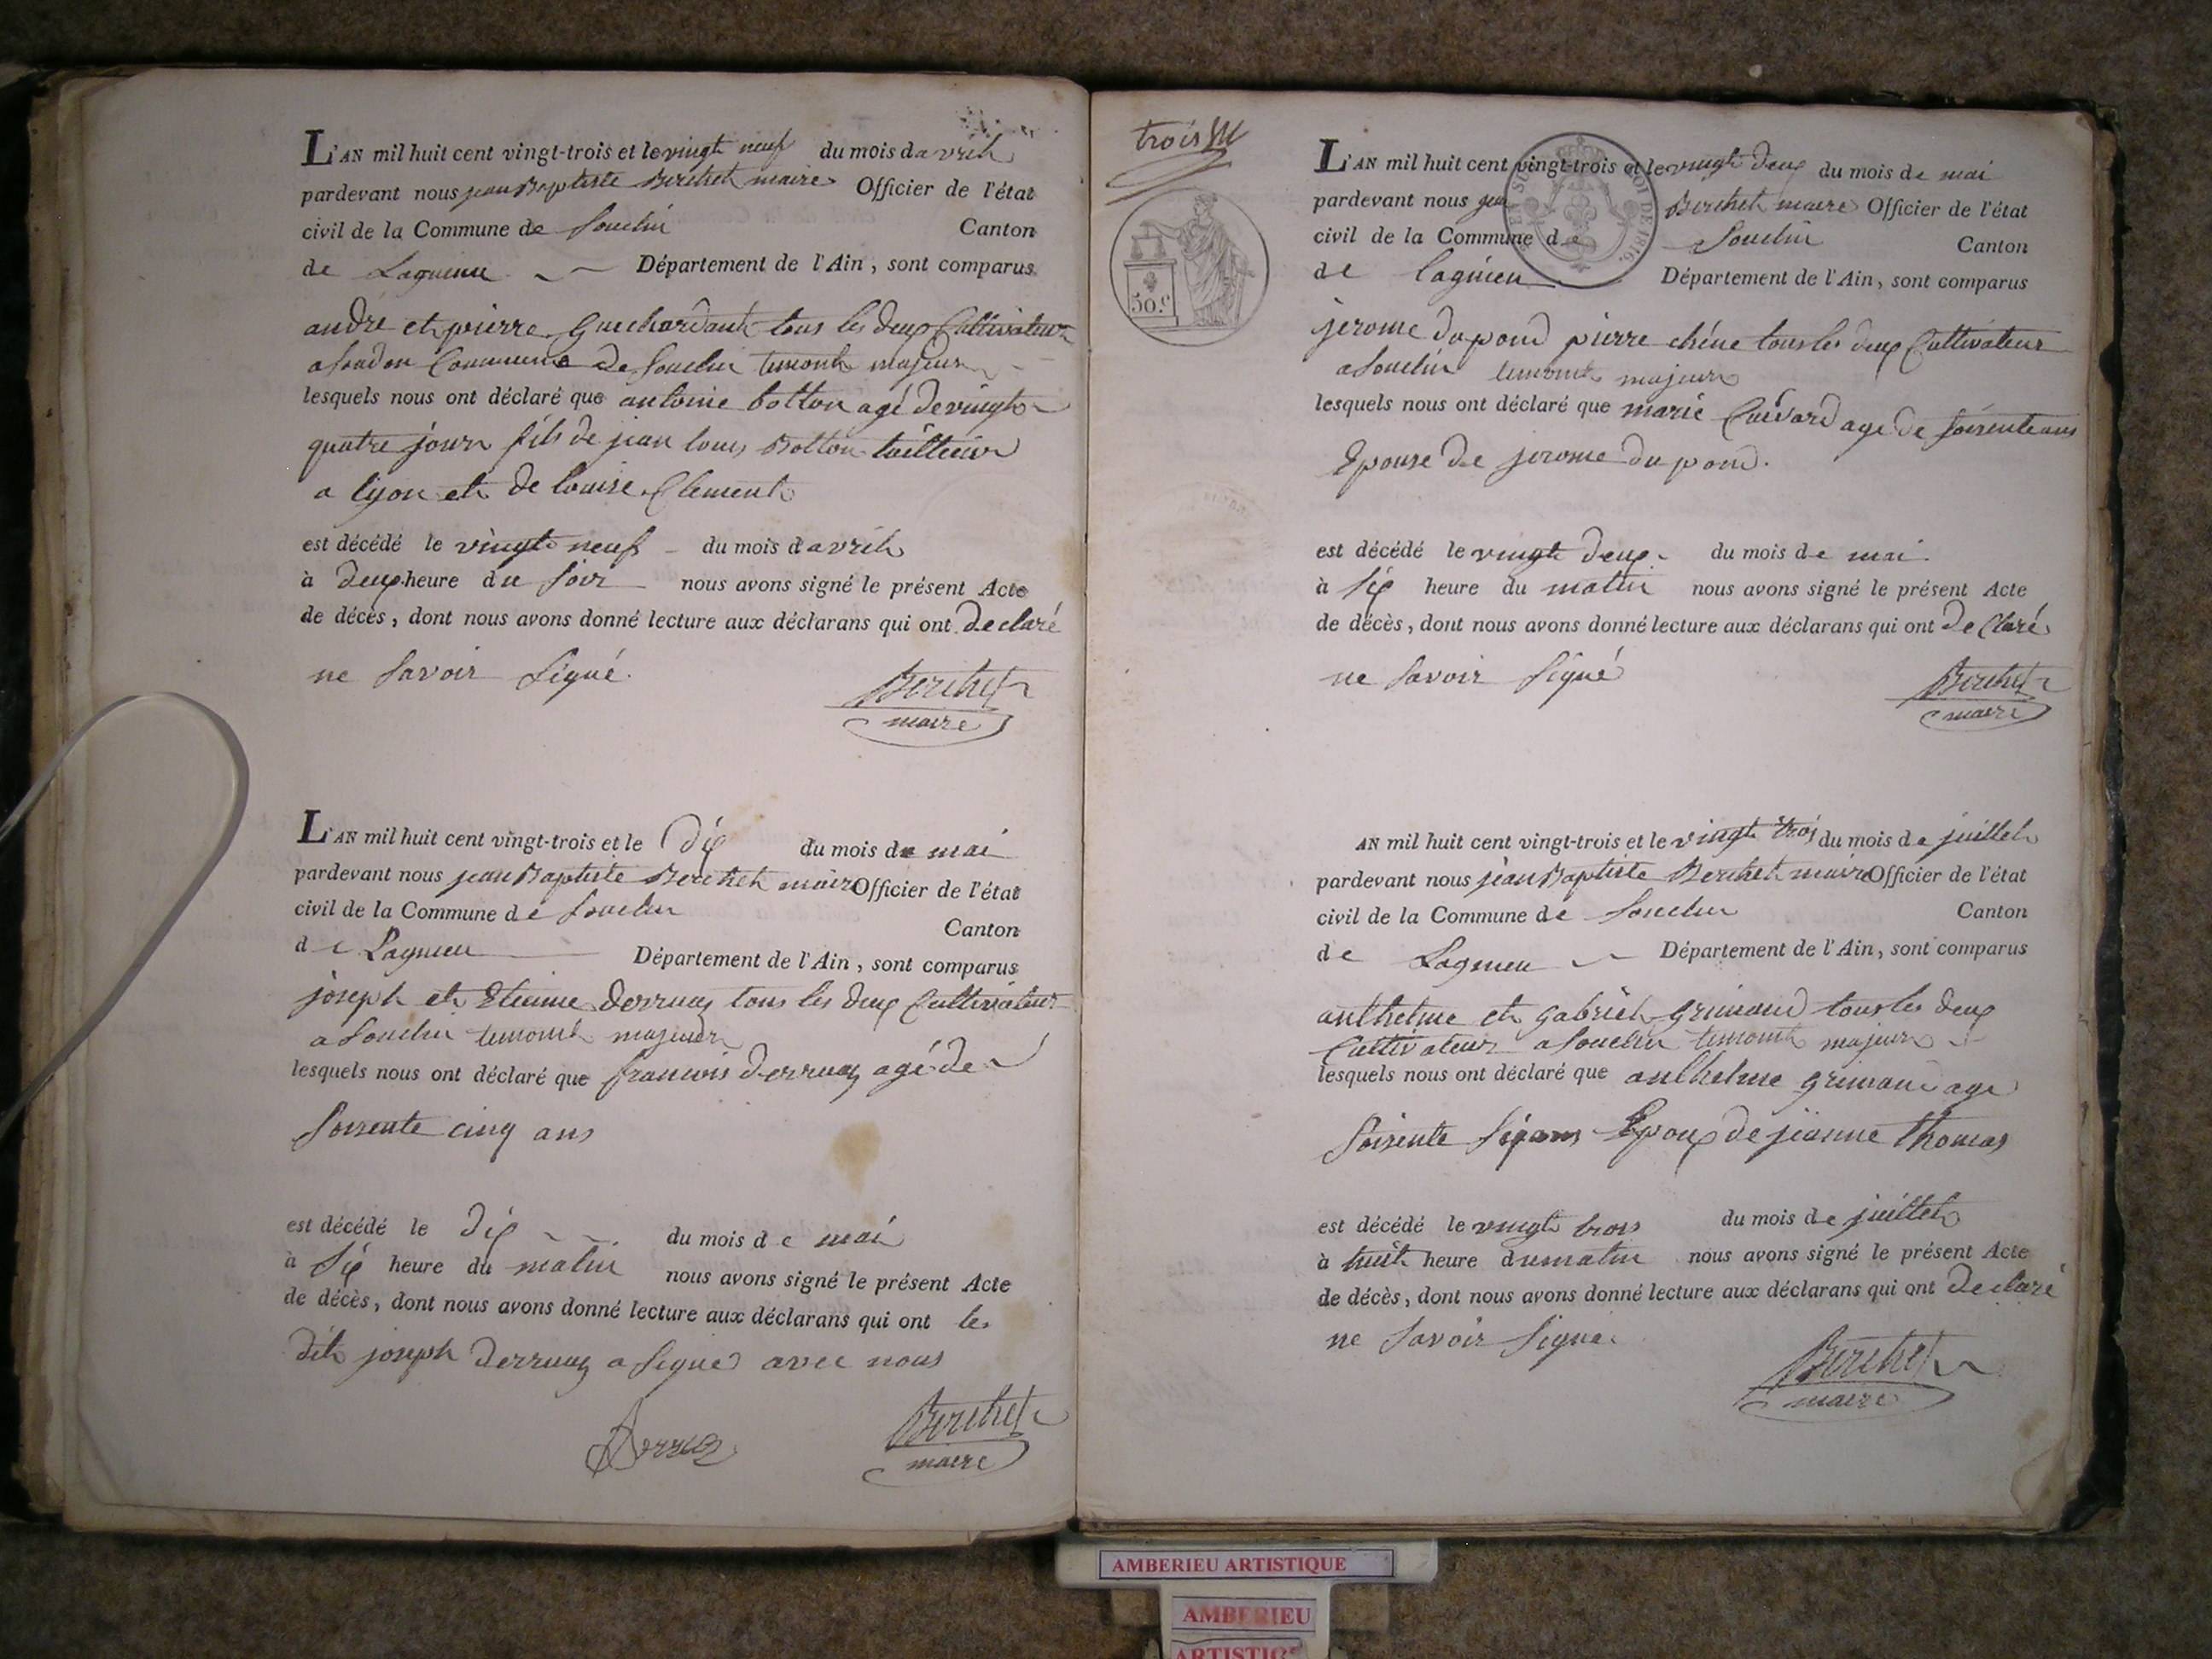 L'AN mil huit cent vingt-trois et le vingt neuf du mois d avril
pardevant nous jean Baptiste Berthet maire Officier de l'état
civil de la Commune de Souclin Canton
de Lagnieu Département de l'Ain, sont comparus
andré et pierre Guichardant tous les deux Cultivateur
a Soudon Commune de Souclin temoint majeur
lesquels nous ont déclaré que antoine bolton agé de vingt
quatre jour fils de jean louis Bolton tailleur
a lyon et de louise Clement
est décédé le vingt neuf du mois d avril
à deux heure du soir nous avons signé le présent Acte
de décès, dont nous avons donné lecture aux déclarans qui ont declaré
ne Savoir Signé.
Berthet
maire
L'AN mil huit cent vingt-trois et le dix du mois de mai
pardevant nous jean Baptiste Berthet maire Officier de l'état
civil de la Commune de Souclin
Canton
de Lagnieu Département de l'Ain, sont comparus
joseph et Etienne derruaz tous les deux Cultivateur
a Souclin temoint majeur
lesquels nous ont déclaré que francois derruaz agé de
Soisente cinq ans
est décédé le dix du mois de mai
à Six heure du matin nous avons signé le présent Acte
de décès, dont nous avons donné lecture aux déclarans qui ont le
dit joseph derruaz a Signé avec nous
Derruaz
Berthet
maire
trois
50.c
L'AN mil huit cent vingt-trois et le vingt deux du mois de mai
pardevant nous jean Berthet maire Officier de l'état
civil de la Commune de Souclin Canton
de lagnieu Département de l'Ain, sont comparus
jerome dupond pierre chéne tous les deux Cultivateur
a Souclin temoint majeur
lesquels nous ont déclaré que marie Cuévard age de soisente ans
Epouse de jerome dupond.
est décédé le vingt deux du mois de mai
à Six heure du matin nous avons signé le présent Acte
de décès, dont nous avons donné lecture aux déclarans qui ont declaré
ne Savoir Signé
Berthet
maire
AN mil huit cent vingt-trois et le vingt trois du mois de juillet
pardevant nous jean Baptiste Berthet maire Officier de l'état
civil de la Commune de Souclin Canton
de Lagnieu Département de l'Ain, sont comparus
anthelme et gabriel grimand tous les deux
Cultivateur a Souclin temoint majeur
lesquels nous ont déclaré que anthelme grimand age
Soisente Six ans Epoux de jeanne thomas
est décédé le vingt trois du mois de juillet
à huit heure du matin nous avons signé le présent Acte
de décès, dont nous avons donné lecture aux déclarans qui ont declaré
ne Savoir Signé
Berthet
maire
AMBERIEU ARTISTIQUE
AMBERIEU
ARTISTIQUE